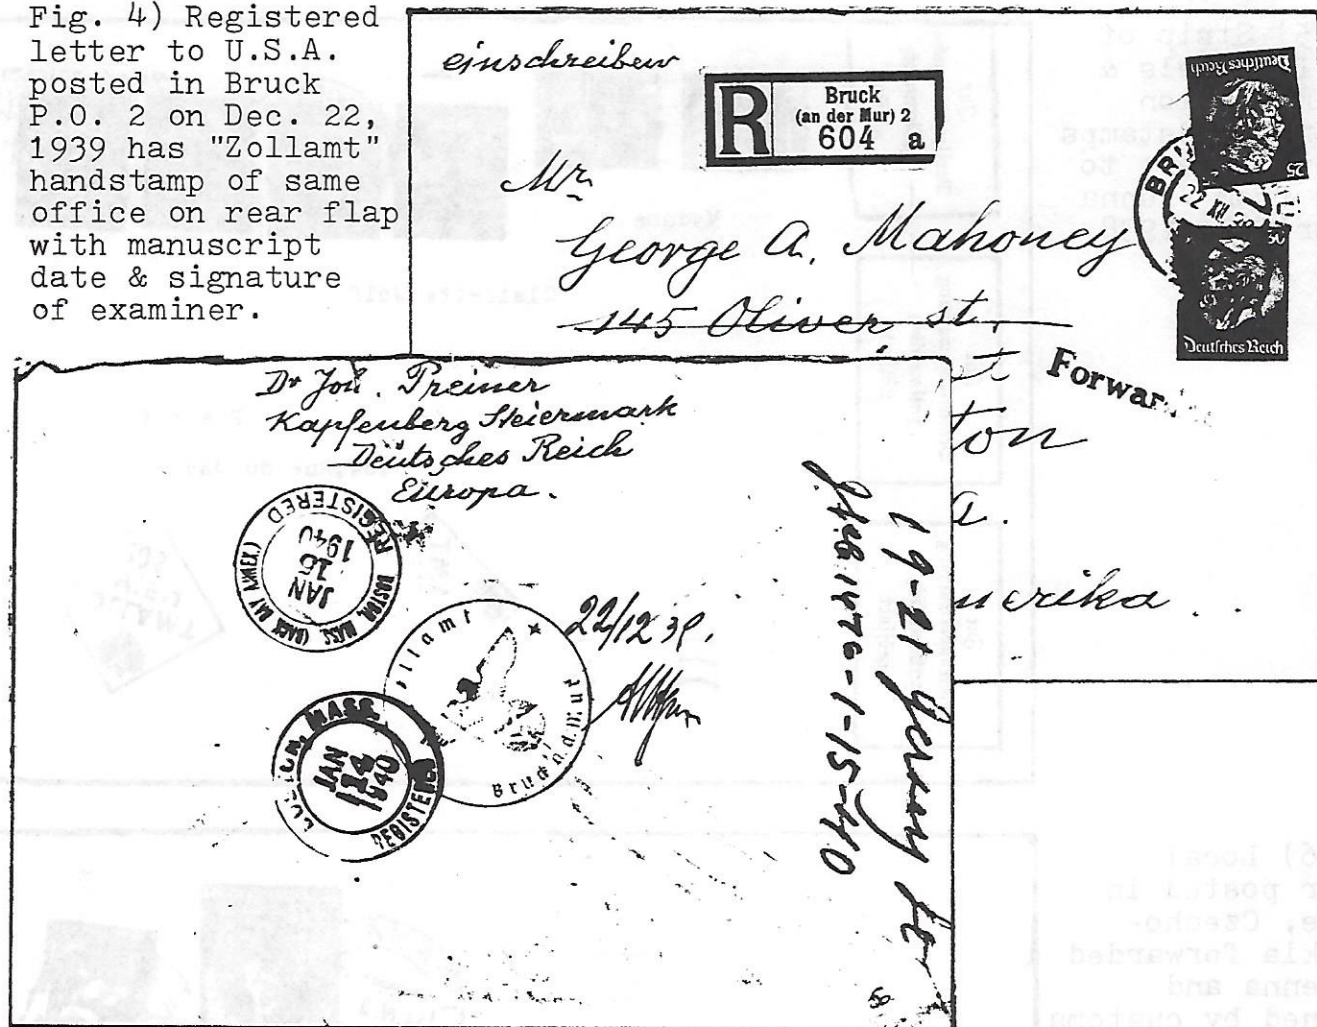 Fig. 4) Registered
letter to U.S.A.
posted in Bruck
P.O. 2 on Dec. 22,
1939 has "Zollamt"
handstamp of same
office on rear flap
with manuscript
date & signature
of examiner.
einschreiben
R
Bruck
(an der Mur) 2
604 a
Deutsches Reich
25
22 XII 39
30
Deutsches Reich
Mr
George A. Mahoney
145 Oliver st.
Forwar
ton
a.
merika
Dr Joh. Preiner
Kapfenberg Steiermark
Deutsches Reich
Europa.
REGISTERED
JAN
16
1940
BOSTON, MASS. (BACK BAY ANNEX.)
22/12 39.
ollamt
Bruck a.d. Mur
MASS.
JAN
14
1940
REGISTERED
19-21
1-15-40